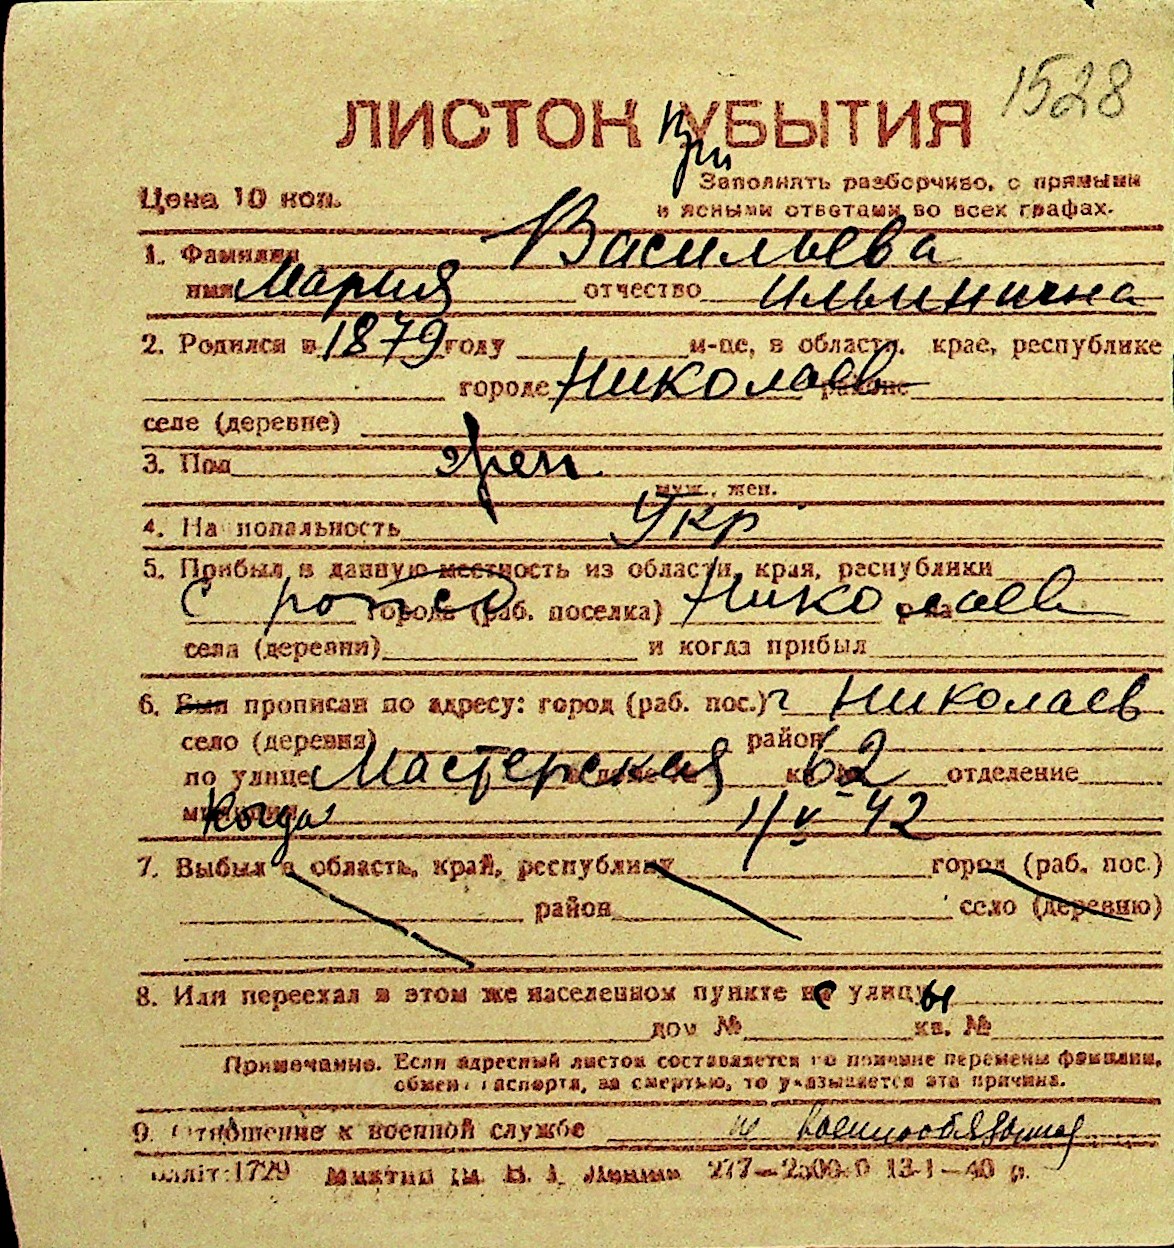 1528
ЛИСТОК При УБЫТИЯ
Цена 10 коп.
Заполнять разборчиво, с прямыми
и ясными ответами во всех графах.
1. Фамилия Васильева
имя Мария отчество Ильинична
2. Родился в 1879 году м-це, в области, крае, республике
городе Николаев районе
селе (деревне)
3. Пол жен
муж., жен.
4. Национальность Укр
5. Прибыл в данную местность из области, края, республики
С рожд города (раб. поселка) Николаев р-на
села (деревни) и когда прибыл
6. Был прописан по адресу: город (раб. пос.) г Николаев
село (деревня) район
по улице Мастерская 62 отделение
милиции Когда 11/V-42
7. Выбыл в область, край, республику город (раб. пос.)
район село (деревню)
8. Или переехал в этом же населенном пункте с улицы
дом № кв. №
Примечание. Если адресный листок составляется по причине перемены фамилии,
обмена паспорта, за смертью, то указывается эта причина.
9. Отношение к военной службе не военнообязанная
1729 В. І. Леніна 277—2500 0 13-1—40 р.